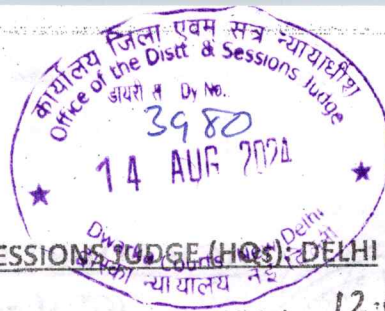 कार्यालय जिला एवम सत्र न्यायाधीश
Office of the Distt & Sessions Judge
डायरी सं Dy No.
3980
14 AUG 2024
Dwarka Courts New Delhi
न्यायालय नई
ESSIONS JUDGE (HQs): DELHI
12